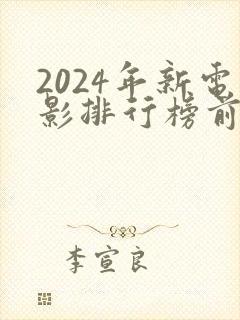 2024年新电
影排行榜前
李宣良